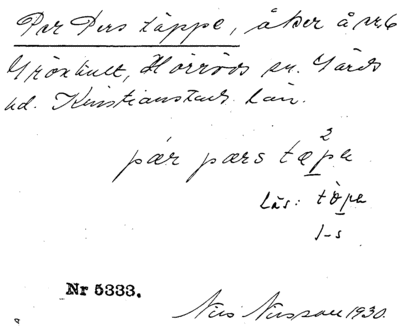 Per Pers täppe, åker å nr 6
Gröxhult, Hörröds sn. Gärds
hd. Kristianstads län.
2
pär pærs tæpe
Läs: tòpe
l-s
Nr 5333.
Nils Nilsson 1930.